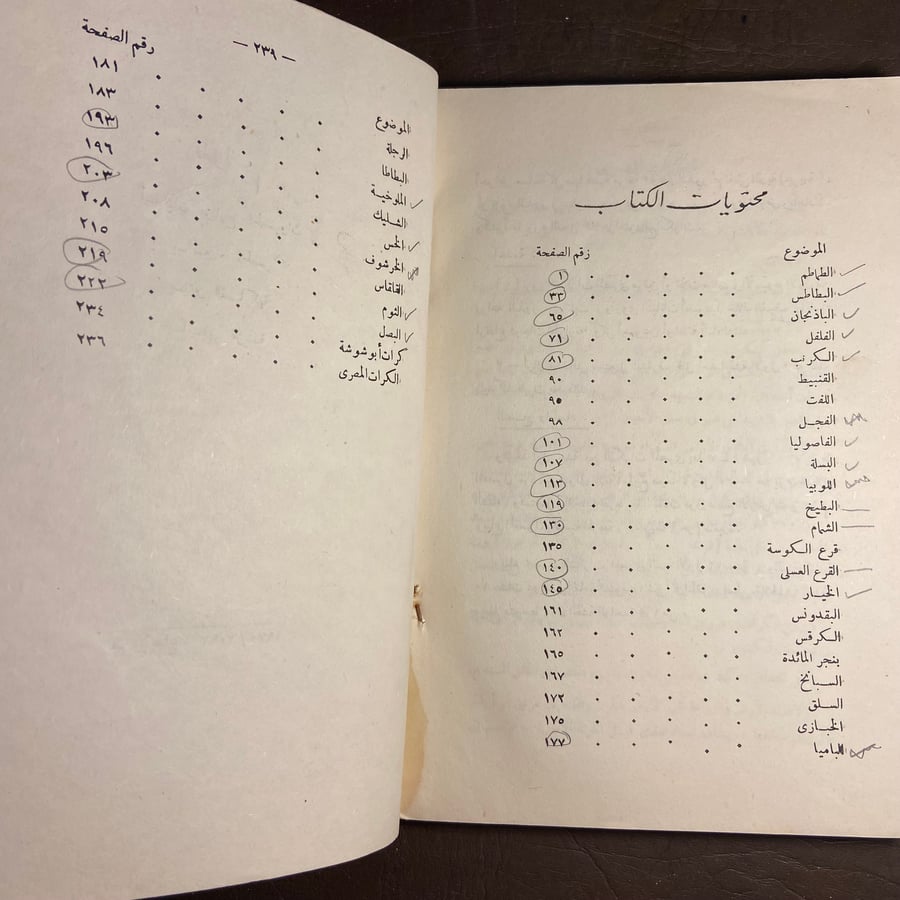 محتويات الكتاب
الموضوع رقم الصفحة
الطماطم . . . . . ١
البطاطس . . . . . ٣٣
الباذنجان . . . . . ٦٥
الفلفل . . . . . ٧١
الكرنب . . . . . ٨١
القنبيط . . . . . ٩٠
اللفت . . . . . ٩٥
الفجل . . . . . ٩٨
الفاصوليا . . . . . ١٠١
البسلة . . . . . ١٠٧
اللوبيا . . . . . ١١٣
البطيخ . . . . . ١١٩
الشمام . . . . . ١٣٠
قرع الكوسة . . . . . ١٣٥
القرع العسلى . . . . . ١٤٠
الخيار . . . . . ١٤٥
البقدونس . . . . . ١٦١
الكرفس . . . . . ١٦٢
بنجر المائدة . . . . . ١٦٥
السبانخ . . . . . ١٦٧
السلق . . . . . ١٧٢
الخبازى . . . . . ١٧٥
الباميا . . . . . ١٧٧
— ٢٣٩ —
الموضوع رقم الصفحة
الرجلة . . . . . ١٨١
البطاطا . . . . . ١٨٣
الملوخية . . . . . ١٩٣
الشليك . . . . . ١٩٦
الخس . . . . . ٢٠٣
الخرشوف . . . . . ٢٠٨
القلقاس . . . . . ٢١٥
الثوم . . . . . ٢١٩
البصل . . . . . ٢٢٢
كرات أبو شوشة . . . . . ٢٣٤
الكرات المصرى . . . . . ٢٣٦